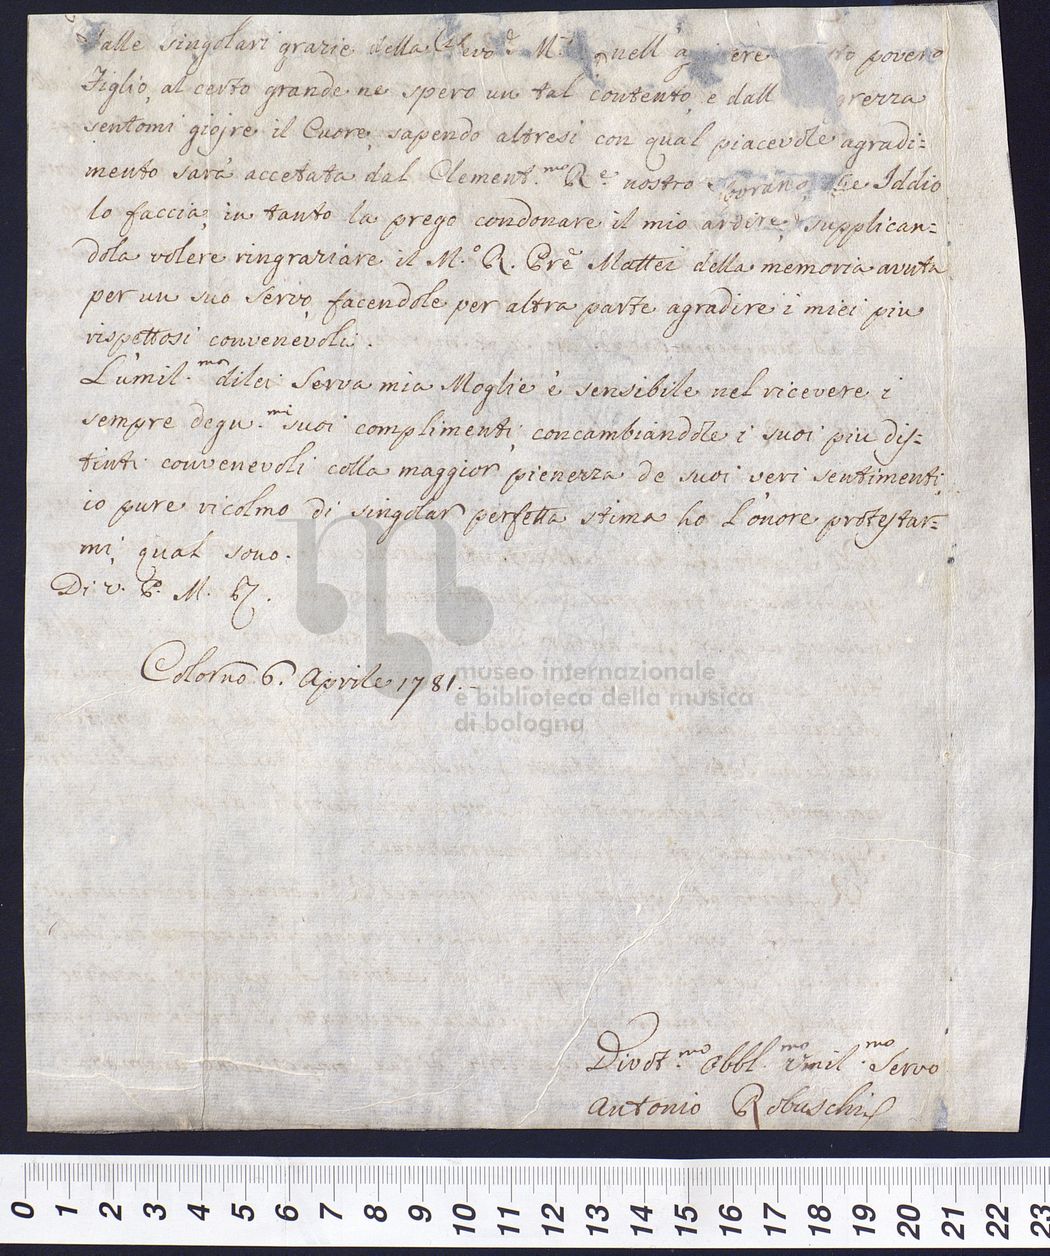 Dalle singolari grazie della
Figlio, al certo grande ne spero un tal contento, e dall
sentomi giojre il Cuore, sapendo altresi con qual piacevole agradi=
mento sarà accetata dal Clement.mo R.e nostro Iddio
lo faccia, in tanto la prego condonare il mio ardire, supplican=
dola volere ringraziare il M.o R. Prē Mattei della memoria avuta
per un suo Servo, facendole per altra parte agradire i miei piu
rispettosi convenevoli.
L'umil.ma di lei Serva mia Moglie è sensibile nel ricevere i
sempre degn.mi suoi complimenti, concambiandole i suoi piu dis=
tinti convenevoli colla maggior pienezza de suoi veri sentimenti,
io pure ricolmo di singolar perfetta stima ho l'onore protestar=
mi qual sono.
Di V. P. M. R.
Colorno 6. Aprile 1781.
museo internazionale
e biblioteca della musica
di bologna
Divot.mo Obbl.mo Umil.mo Servo
Antonio Robuschi
0 1 2 3 4 5 6 7 8 9 10 11 12 13 14 15 16 17 18 19 20 21 22 23